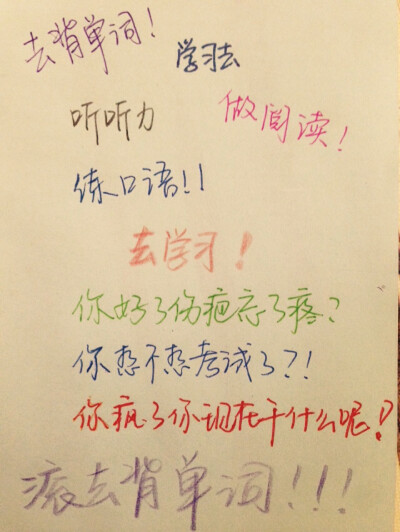 去背单词!
学习去
听听力
做阅读!
练口语!!
去学习!
你好了伤疤忘了疼?
你想不想考试了?!
你疯了你现在干什么呢?
滚去背单词!!!